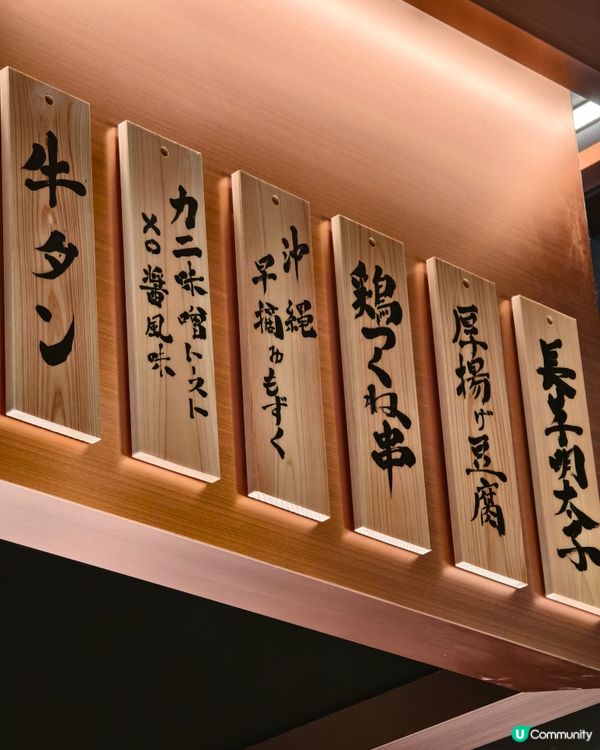 牛タン
カニ味噌トースト
XO醤風味
沖縄
早摘みもずく
鶏つくね串
厚揚げ豆腐
長芋明太子
U Community